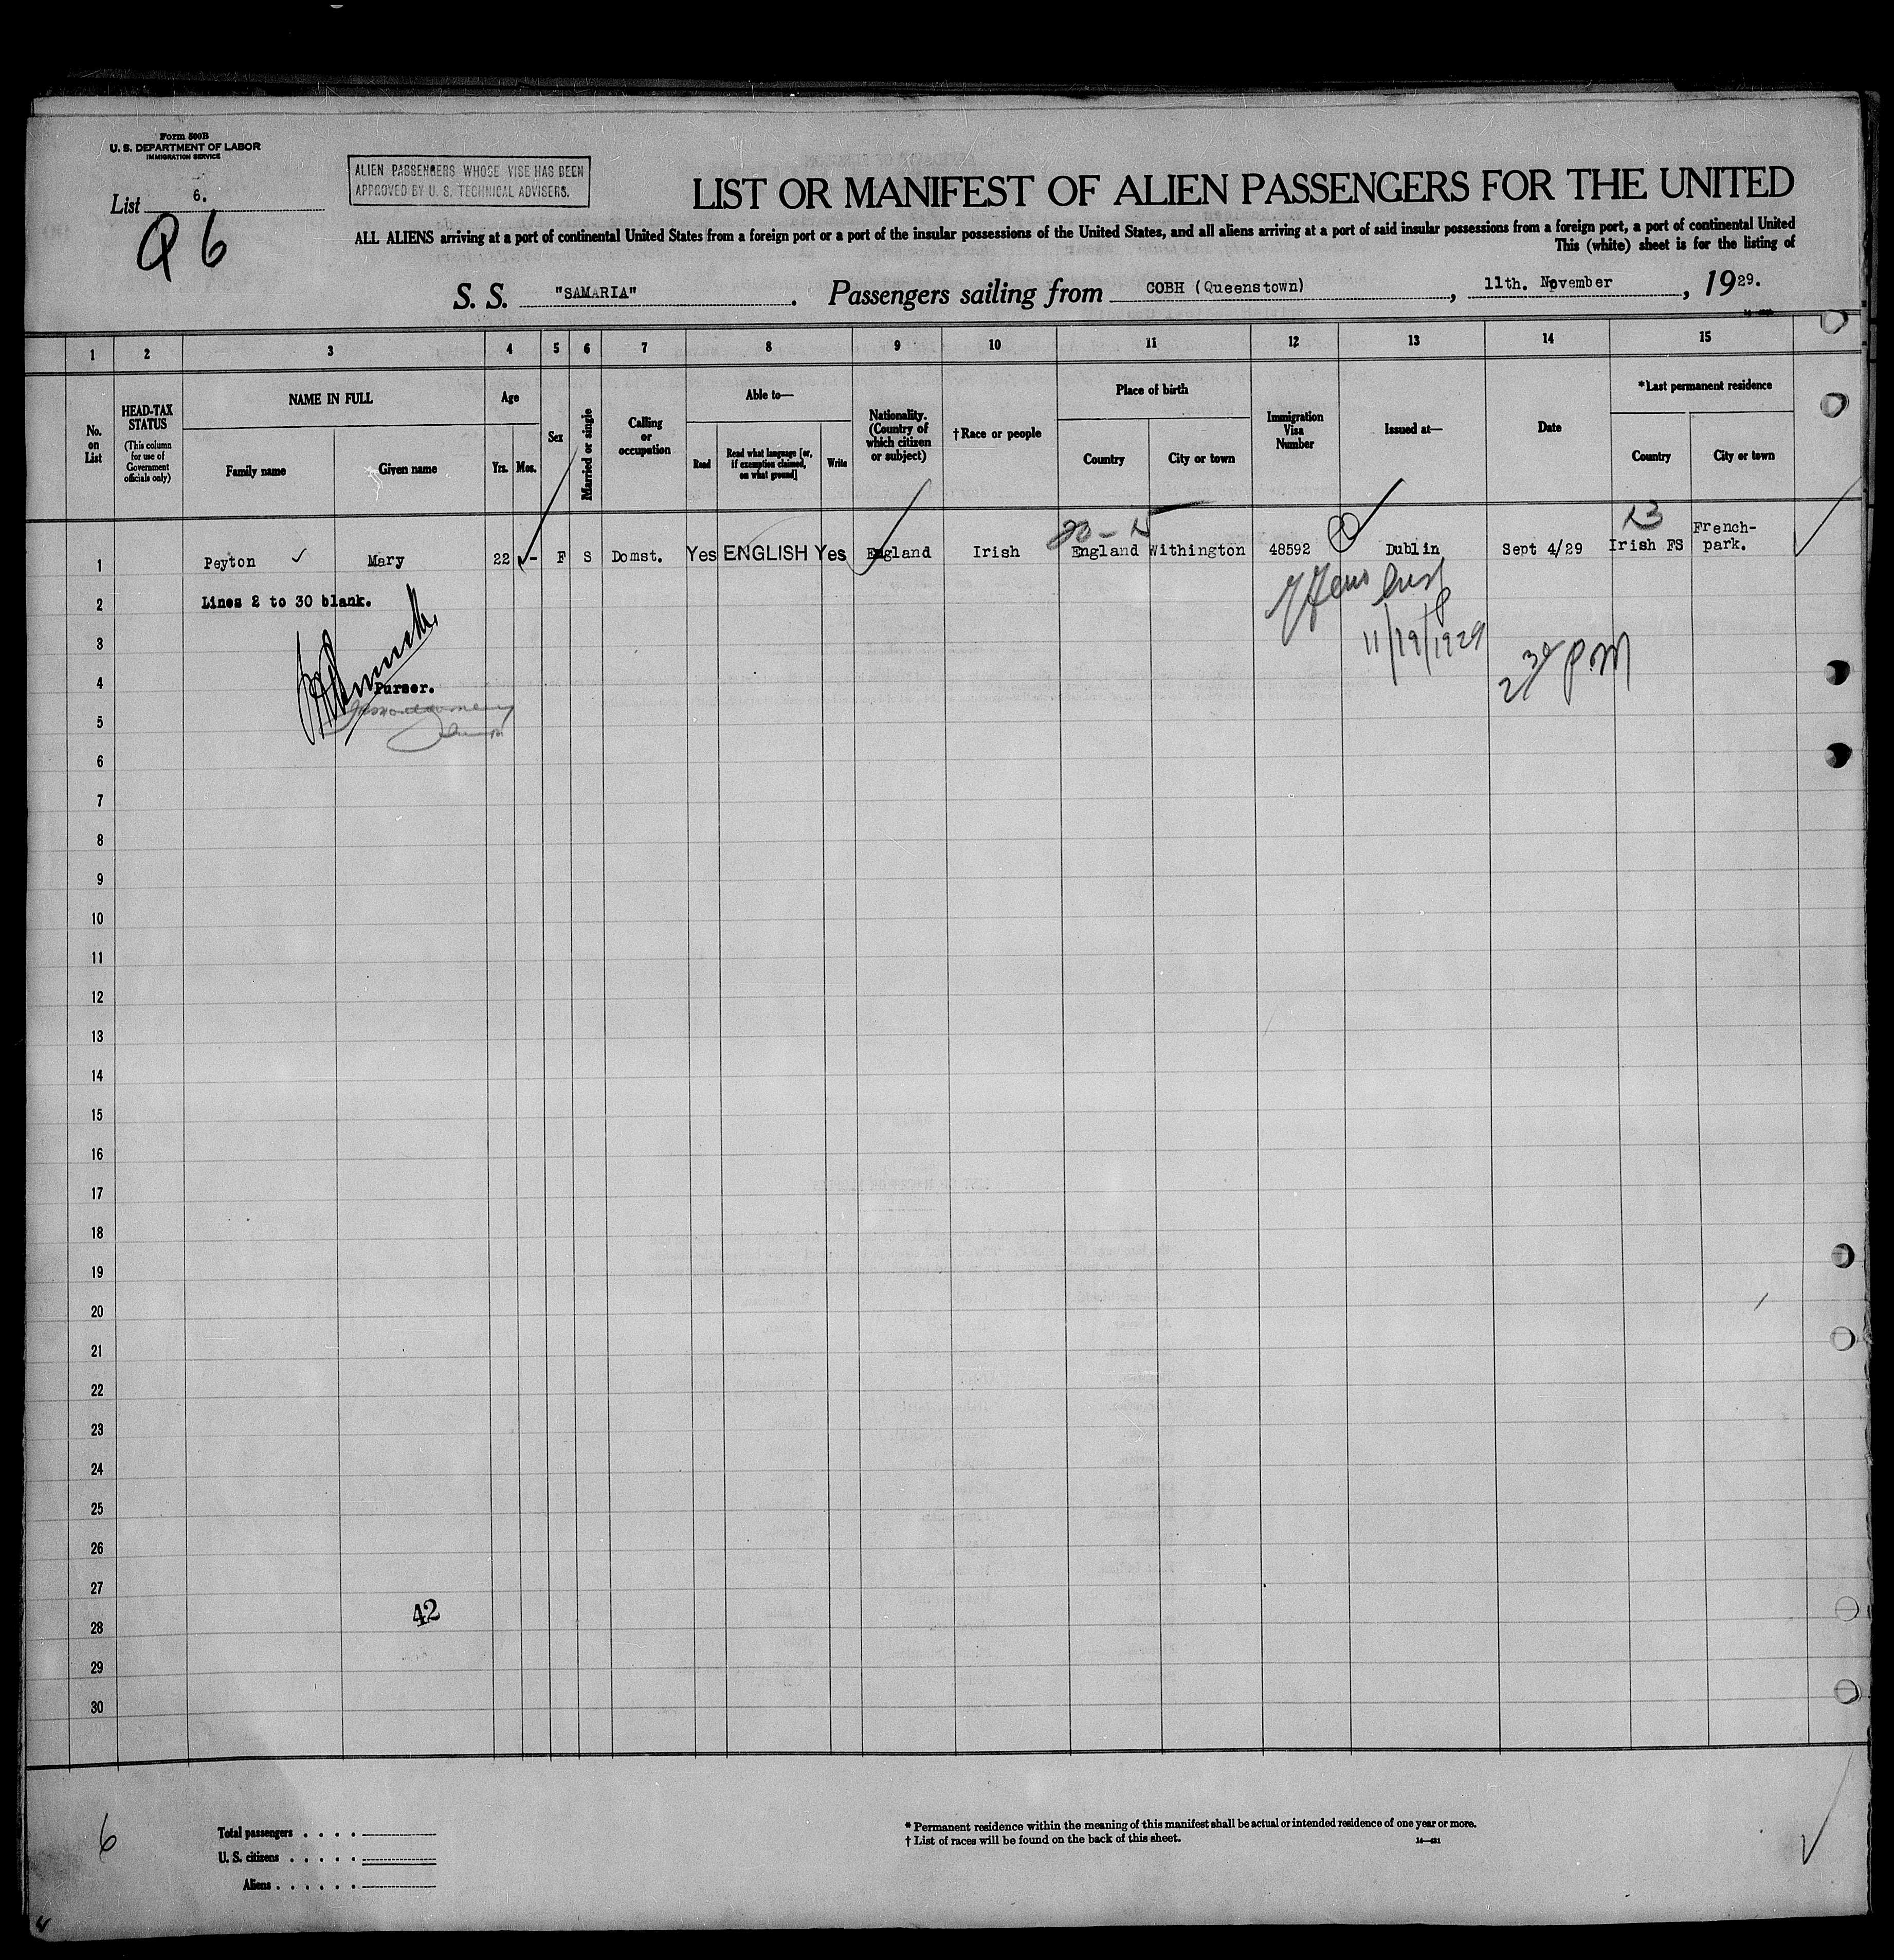 Form 500B
U. S. DEPARTMENT OF LABOR
IMMIGRATION SERVICE
List 6.
Q 6
ALIEN PASSENGERS WHOSE VISE HAS BEEN
APPROVED BY U. S. TECHNICAL ADVISERS.
LIST OR MANIFEST OF ALIEN PASSENGERS FOR THE UNITED
ALL ALIENS arriving at a port of continental United States from a foreign port or a port of the insular possessions of the United States, and all aliens arriving at a port of said insular possessions from a foreign port, a port of continental United
This (white) sheet is for the listing of
S. S. "SAMARIA". Passengers sailing from COBH (Queenstown), 11th. November, 1929.
1 2 3 4 5 6 7 8 9 10 11 12 13 14 15
No. on List
HEAD-TAX STATUS
(This column for use of Government officials only)
NAME IN FULL
Family name
Given name
Age
Yrs. Mos.
Sex
Married or single
Calling or occupation
Able to—
Read
Read what language [or, if exemption claimed, on what ground]
Write
Nationality. (Country of which citizen or subject)
†Race or people
Place of birth
Country
City or town
Immigration Visa Number
Issued at—
Date
*Last permanent residence
Country
City or town
1 Peyton Mary 22 - F S Domst. Yes ENGLISH Yes England Irish England Withington 48592 Dublin Sept 4/29 Irish FS French-park.
2 Lines 2 to 30 blank.
3
11/19/1929
2 30 P.M
4 Purser.
5
6
7
8
9
10
11
12
13
14
15
16
17
18
19
20
21
22
23
24
25
26
27
42
28
29
30
6
Total passengers . . . .
U. S. citizens . . . . .
Aliens . . . . . .
* Permanent residence within the meaning of this manifest shall be actual or intended residence of one year or more.
† List of races will be found on the back of this sheet.